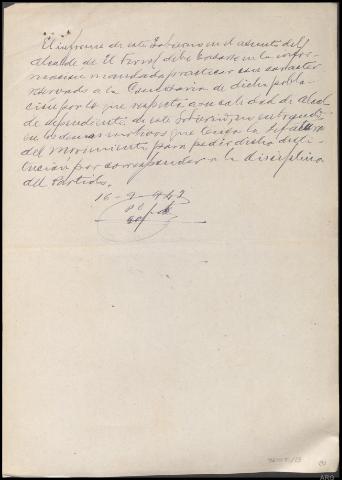 El informe de este Gobierno en el asunto del
alcalde de El Ferrol debe basarse en la infor-
macion mandada practicar con caracter
reservado a la Comisaria de dicha pobla-
cion por lo que respecta a su calidad de alcal-
de dependiente de este Gobierno, sin entrar
en los demas motivos que tenga la Jefatura
del Movimiento para pedir dicha desti-
tucion por corresponder a la disciplina
del Partido.
16-9-942